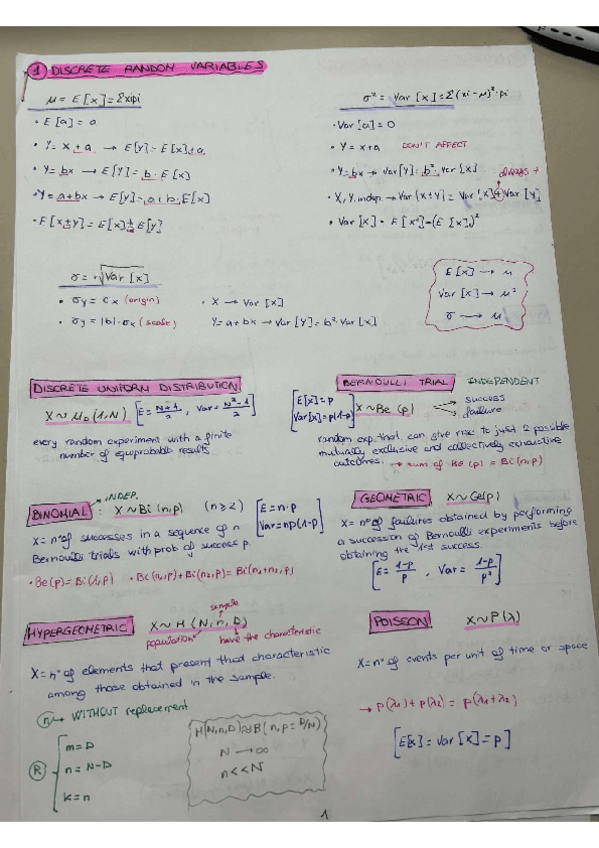 1 DISCRETE RANDON VARIABLES
μ = E[x] = Σxipi
• E[a] = a
• Y = x + a → E[y] = E[x] + a
• Y = bx → E[Y] = b · E[x]
• Y = a + bx → E[y] = a + b · E[x]
• E[x ± y] = E[x] ± E[y]
σ² = Var[x] = Σ(xi - μ)² · pi
• Var[a] = 0
• Y = x + a DON'T AFFECT
• Y = bx → Var[y] = b² · Var[x]
always +
• X, Y indep. → Var(x ± y) = Var[x] + Var[y]
• Var[x] = E[x²] - (E[x])²
σ = +√Var[x]
• σy = σx (origin)
• σy = |b| · σx (scale)
• X → Var[x]
Y = a + bx → Var[Y] = b² Var[x]
E[x] → μ
Var[x] → μ²
σ → μ
DISCRETE UNIFORM DISTRIBUTION
X ~ UD(1, N) [E = N+1/2, Var = N²-1/2]
every random experiment with a finite
number of equiprobable results
BERNOULLI TRIAL INDEPENDENT
[E[x] = p
Var[x] = p(1-p)] X ~ Be(p) → success
→ failure
random exp. that can give rise to just 2 possible
mutually exclusive and collectively exhaustive
outcomes. → sum of Be(p) = Bi(n,p)
INDEP.
BINOMIAL : X ~ Bi(n,p) (n ≥ 2) [E = n · p
Var = np(1-p)]
X = nº of successes in a sequence of n
Bernoulli trials with prob of success p.
• Be(p) = Bi(1,p) • Bi(n₁,p) + Bi(n₂,p) = Bi(n₁+n₂,p)
GEOMETRIC X ~ Ge(p)
X = nº of failures obtained by performing
a succession of Bernoulli experiments before
obtaining the 1st success.
[E = 1-p/p, Var = 1-p/p²]
sample
HYPERGEOMETRIC X ~ H(N, n, D)
population have the characteristic
X = nº of elements that present that characteristic
among those obtained in the sample.
n → WITHOUT replacement
R
m = D
n = N-D
k = n
H(N,n,D) ≈ B(n, p = D/N)
N → ∞
n << N
POISSON X ~ P(λ)
X = nº of events per unit of time or space
→ P(λ1) + P(λ2) = P(λ1+λ2)
[E[x] = Var[x] = p]
1